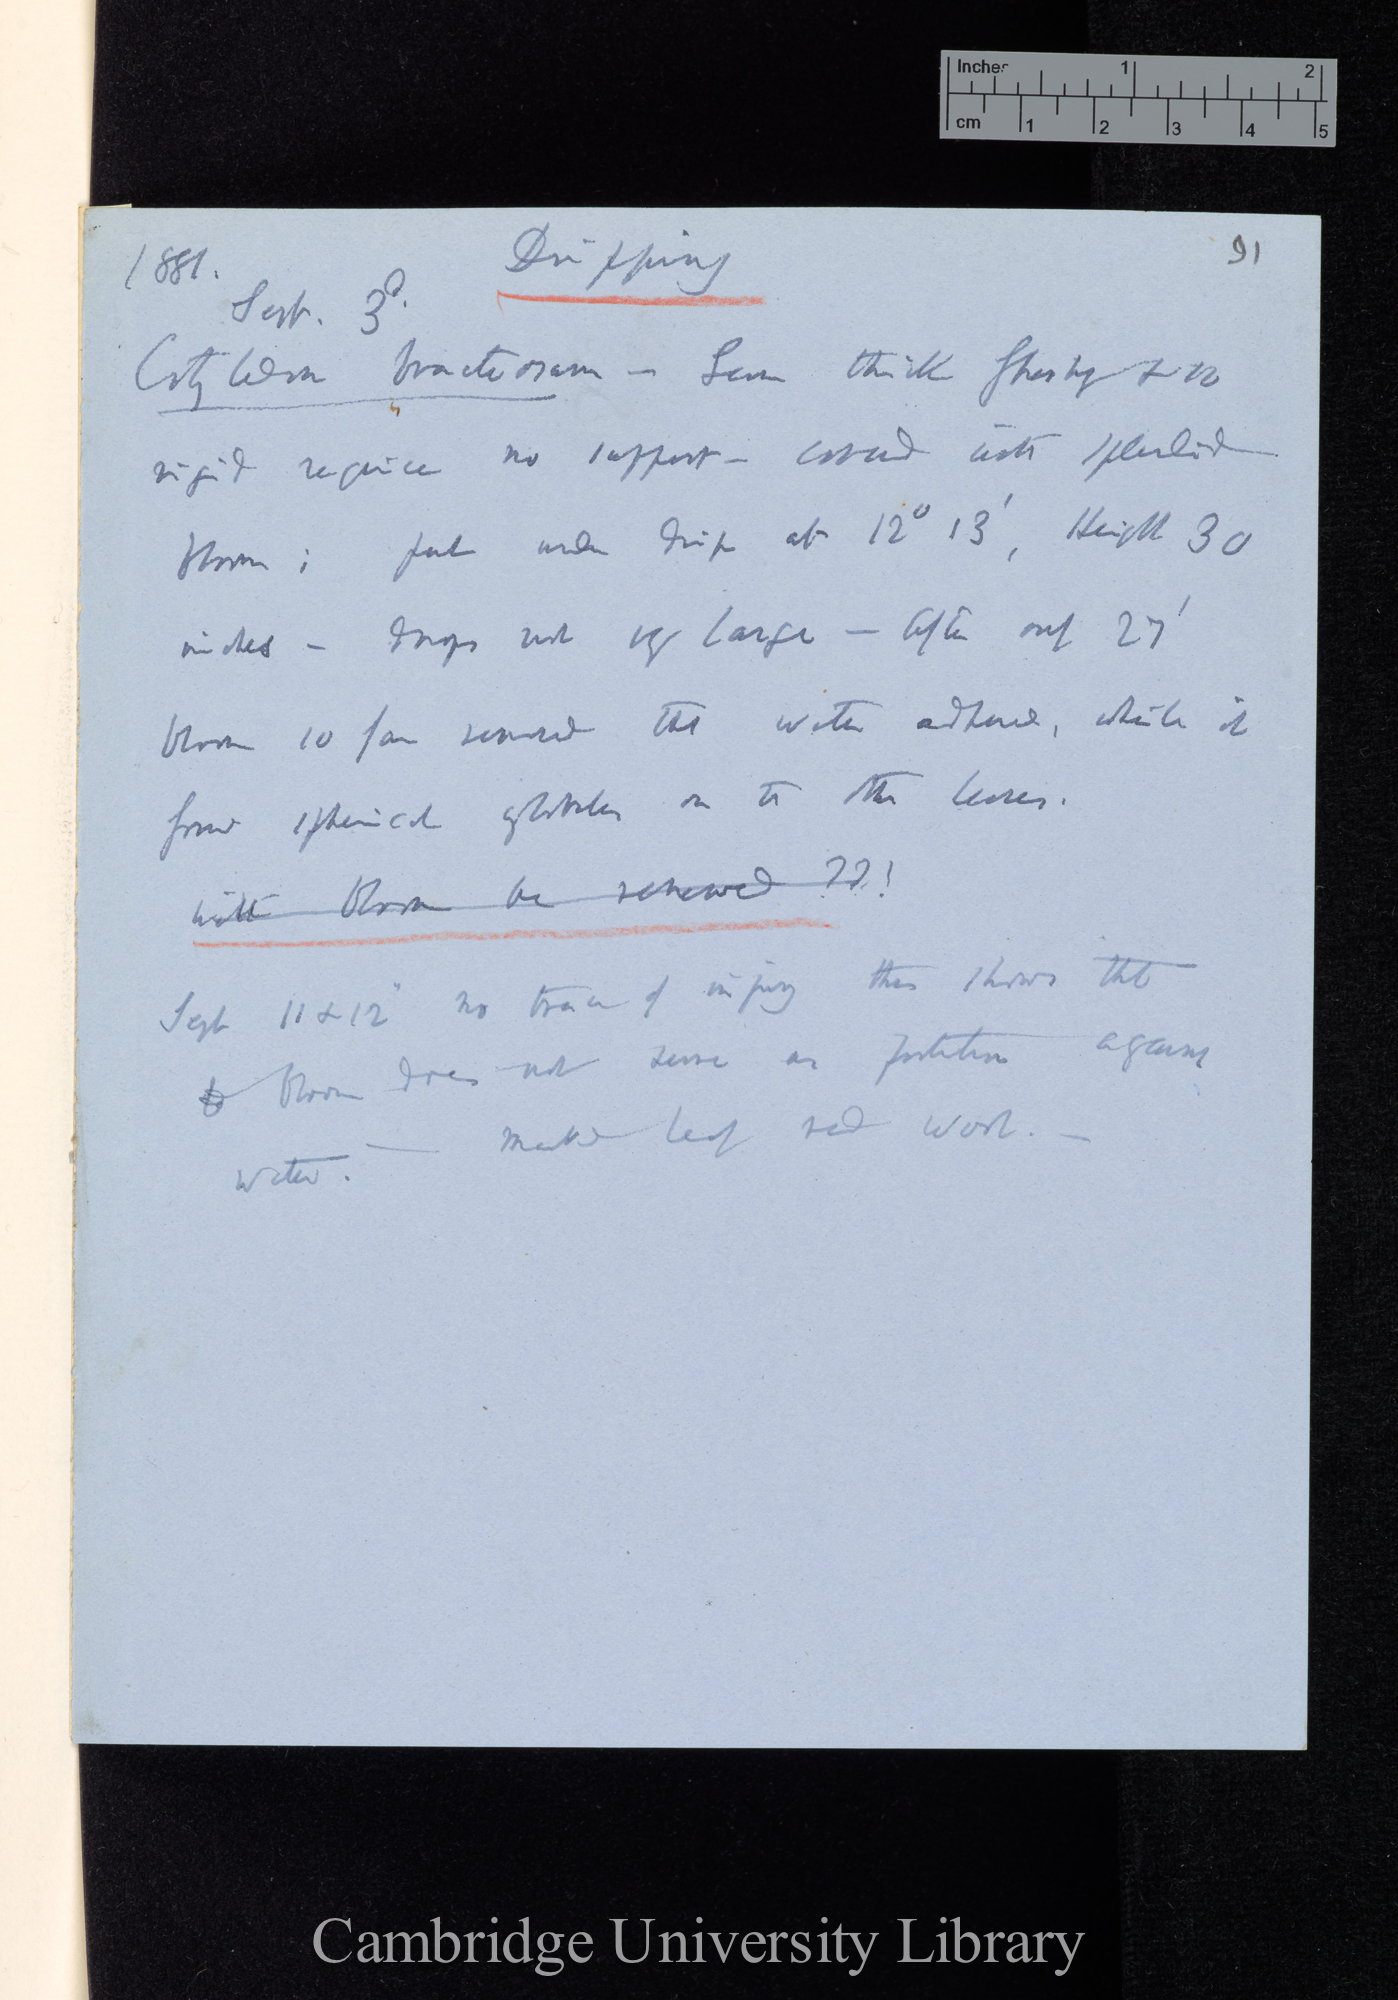 Inches 1 2
cm 1 2 3 4 5
1881. Dripping 91
Sept. 3d.
Cotyledon bracteosum — Leaves thick fleshy & so
rigid require no support — covered with splendid
bloom; put under drip at 12° 13', Height 30
inches — drops not very large — After only 27'
bloom so far removed that water adhered, while it
forms spherical globules on the other leaves.
will bloom be renewed ??!
Sept 11 & 12" no trace of injury this shows that
bloom does not serve as protection against
water. — marked leaf red wool. —
Cambridge University Library